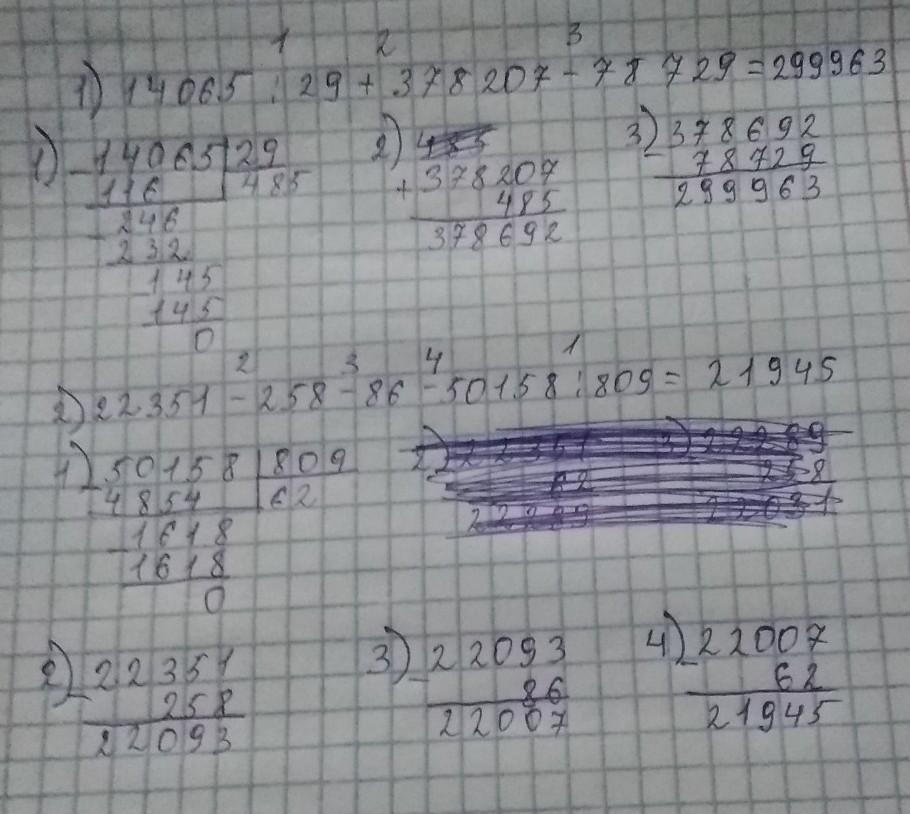 1 2 3
1) 14065 : 29 + 378207 - 78729 = 299963
1) - 14065 | 29
116 | 485
- 246
232
145
145
0
2) 485
+ 378207
485
378692
3) - 378692
78729
299963
2 3 4 1
2) 22351 - 258 - 86 - 50158 : 809 = 21945
1) - 50158 | 809
4854 | 62
- 1618
1618
0
2) - 22351
258
22093
3) - 22093
86
22007
4) - 22007
62
21945